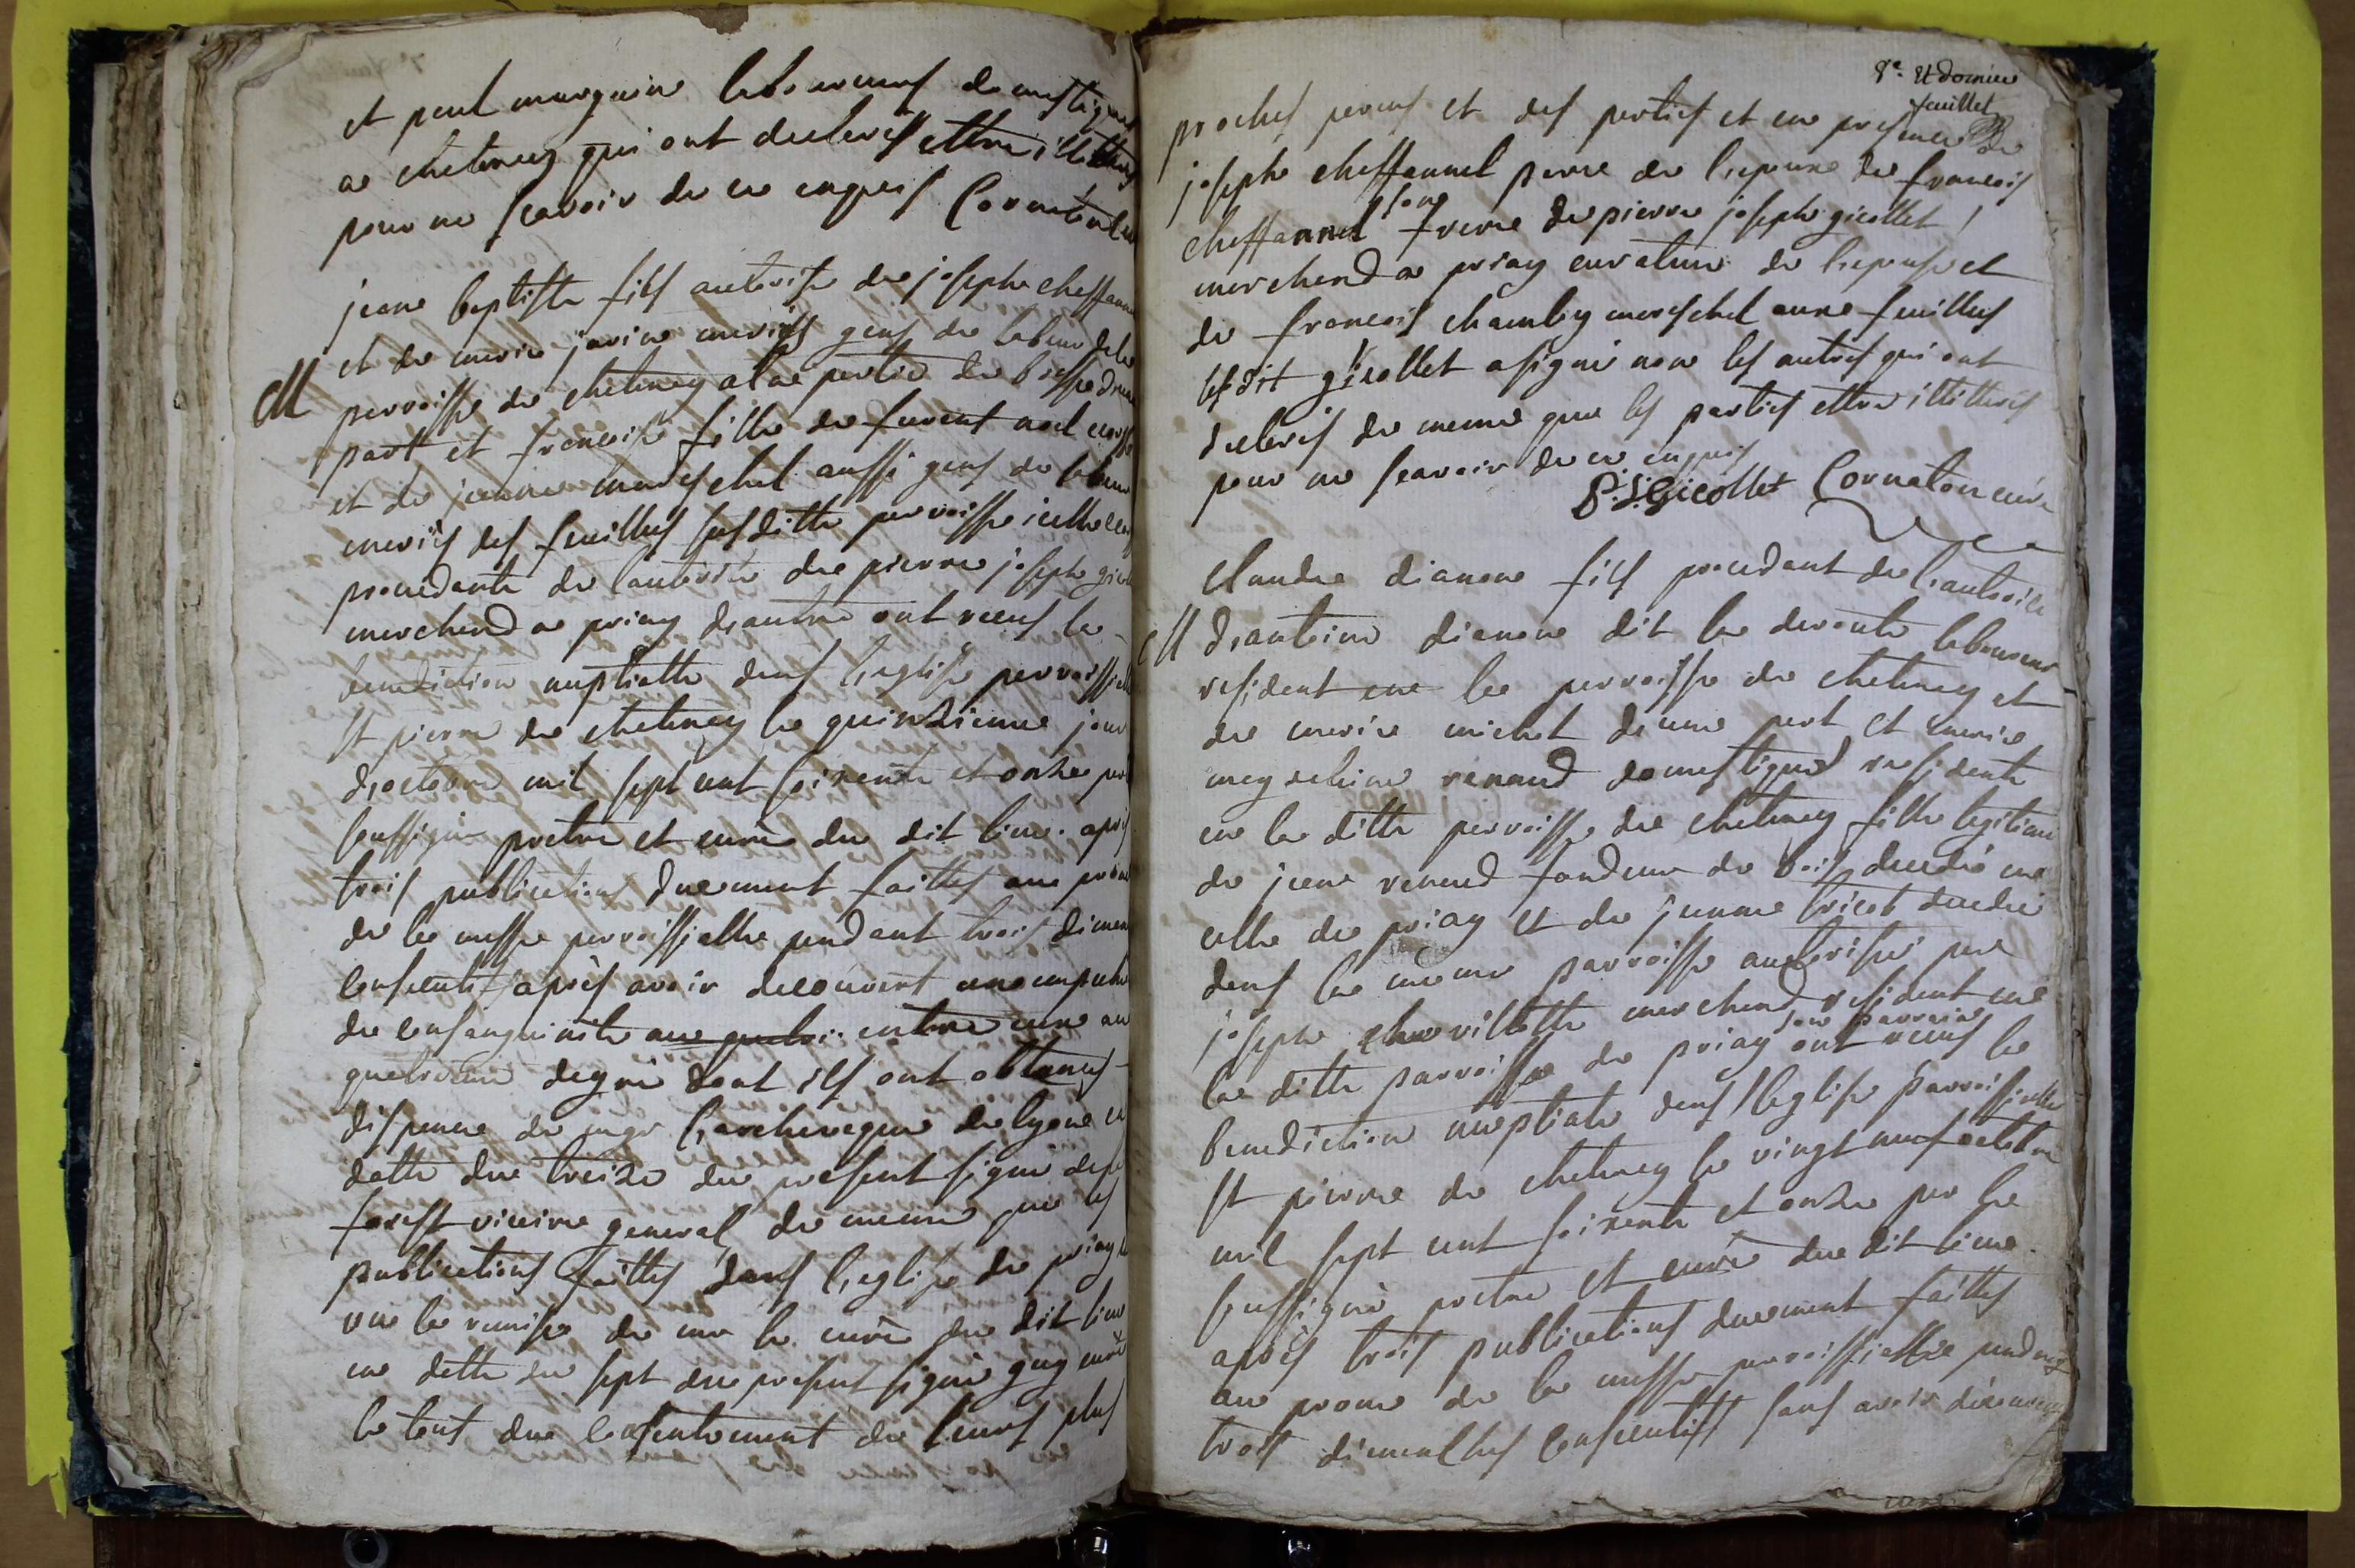 et paul
a chatenay qui ont declarés ettre illetterés
pour ne scavoir de ce enquis Cornaton
jean baptiste fils autorisé de joseph cheffanel
M
et de marie janin mariés gens de labeur de la
parroisse de chatenay a la partie de bresse d'une
part et francoise fille de furent noel
et de jeanne mareschal aussi gens de labeur
mariés des feuilles susditte parroisse icelle
procedante de l'autorité de pierre joseph gicollet
marchand a priay d'autre ont receus la
benediction nuptialle dans l'eglise parroissialle
st pierre de chatenay le quinzieme jour
d'octobre mil sept cent soixante et onze par
soussigné pretre et curé du dit lieu apres
trois publications duement faittes au prone
de la messe parroissialle pendant trois dimanches
consecutifs après avoir decouvert
de consanguinité entre eux au
quatrieme degré dont ils ont obtenus
dispence de mgr l'archeveque de lyon en
datte du treize du present signé
vicaire general de meme que les
publications faittes dans l'eglise de priay
vue la remise de mr le curé du dit lieu
en datte du sept du present signé guy curé
le tout du consentement de leurs plus
8e. et dernier
feuillet
proches parens et des parties et en presence de
joseph cheffannel perre de l'epoux de francois
cheffannel son frere de pierre joseph gicollet
marchand a priay curateur de l'epouse et
de francois chamby mareschal aux feuilles
le dit gicollet a signé non les autres qui ont
declarés de meme que les parties ettre illetterés
pour ne scavoir de ce enquis
P: J: Gicollet Cornaton curé
Claude dianon fils procedant de l'autorité
M
d'antoine dianon dit la deroute laboureur
resident en la parroisse de chatenay et
de marie michel d'une part et marie
magdelaine renaud domestique residente
en la ditte parroisse de chatenay fille legitime
de jean renaud fondeur de bois decedé en
celle de priay et de jeanne tricot decedée
dans la meme parroisse authorisée par
joseph marchand resident en
son parrain
la ditte parroisse de priay ont receus la
benediction nuptiale dans l'eglise parroissialle
st pierre de chatenay le vingt neuf octobre
mil sept cent soixante et onze par le
soussigné pretre et curé du dit lieu
après trois publications duement faittes
au prone de la messe parroissialle pendant
trois dimanches consecutifs sans avoir decouvert